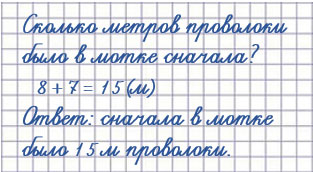 Сколько метров проволоки
было в мотке сначала?
8 + 7 = 15 (м)
Ответ: сначала в мотке
было 15 м проволоки.